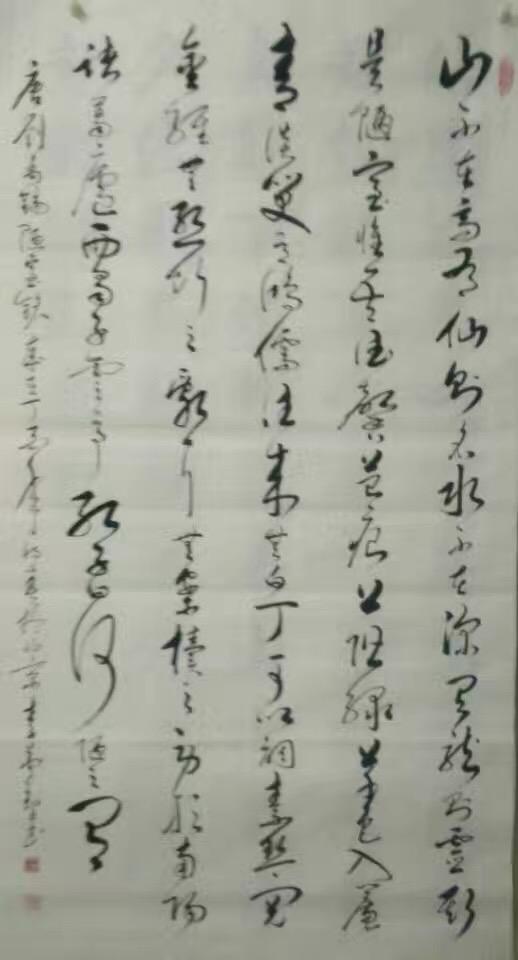 山不在高有仙则名水不在深有龙则灵斯
是陋室惟吾德馨苔痕上阶绿草色入帘
青谈笑有鸿儒往来无白丁可以调素琴阅
金经无丝竹之乱耳无案牍之劳形南阳
诸葛庐西蜀子云亭孔子曰何陋之有
唐刘禹锡陋室铭